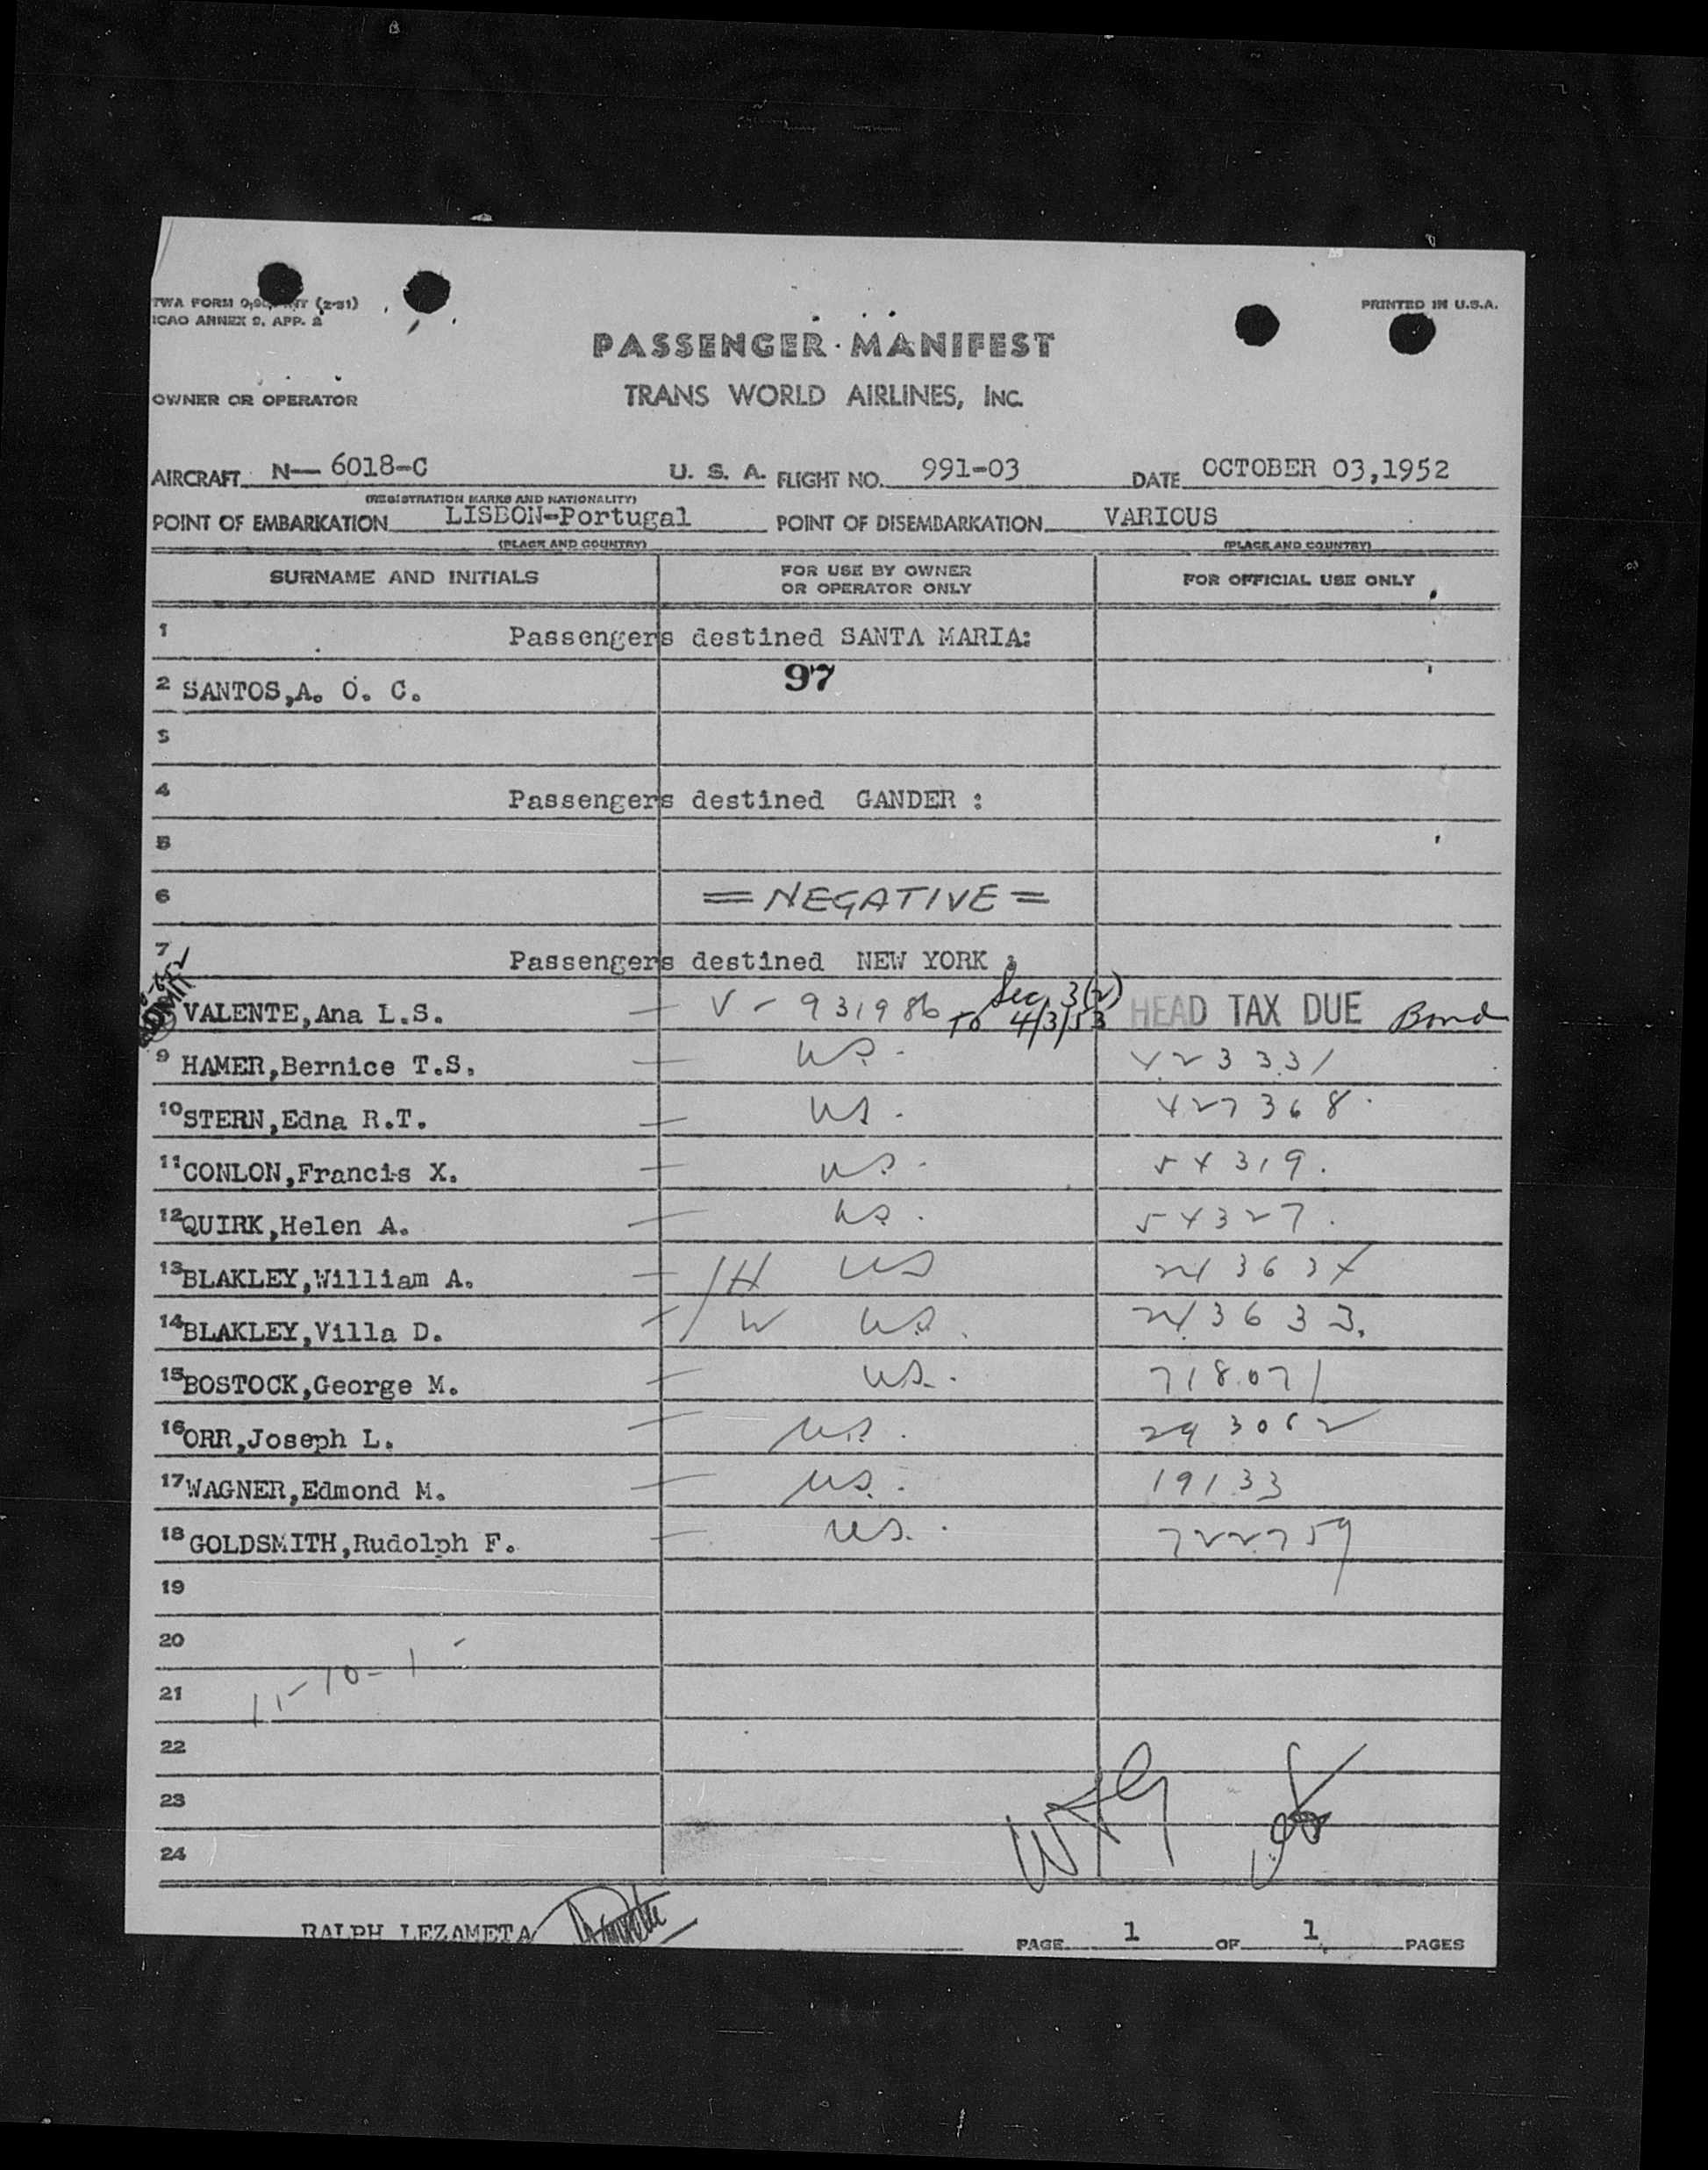 TWA FORM (2-51)
ICAO ANNEX 9. APP. 2
PRINTED IN U.S.A.
PASSENGER MANIFEST
OWNER OR OPERATOR TRANS WORLD AIRLINES, INC.
AIRCRAFT N— 6018-C U. S. A. FLIGHT NO. 991-03 DATE OCTOBER 03,1952
(REGISTRATION MARKS AND NATIONALITY)
POINT OF EMBARKATION LISBON-Portugal POINT OF DISEMBARKATION VARIOUS
(PLACE AND COUNTRY) (PLACE AND COUNTRY)
SURNAME AND INITIALS FOR USE BY OWNER OR OPERATOR ONLY FOR OFFICIAL USE ONLY
1 Passengers destined SANTA MARIA:
2 SANTOS,A. O. C. 97
3
4 Passengers destined GANDER :
5
6 =NEGATIVE=
7 Passengers destined NEW YORK :
ADMIT VALENTE,Ana L.S. — V - 931986 Sec 3(2) TO 4/3/53 HEAD TAX DUE Bond
9 HAMER,Bernice T.S. — US. 423331
10 STERN,Edna R.T. — US. 427368
11 CONLON,Francis X. — US. 54319.
12 QUIRK,Helen A. — US. 54327.
13 BLAKLEY,William A. — H US 243634
14 BLAKLEY,Villa D. — W US. 243633.
15 BOSTOCK,George M. — US. 718071
16 ORR,Joseph L. — US. 293062
17 WAGNER,Edmond M. — US. 19133
18 GOLDSMITH,Rudolph F. — US. 722759
19
20
21 11-10-1
22
23
24
RALPH LEZAMETA PAGE 1 OF 1 PAGES